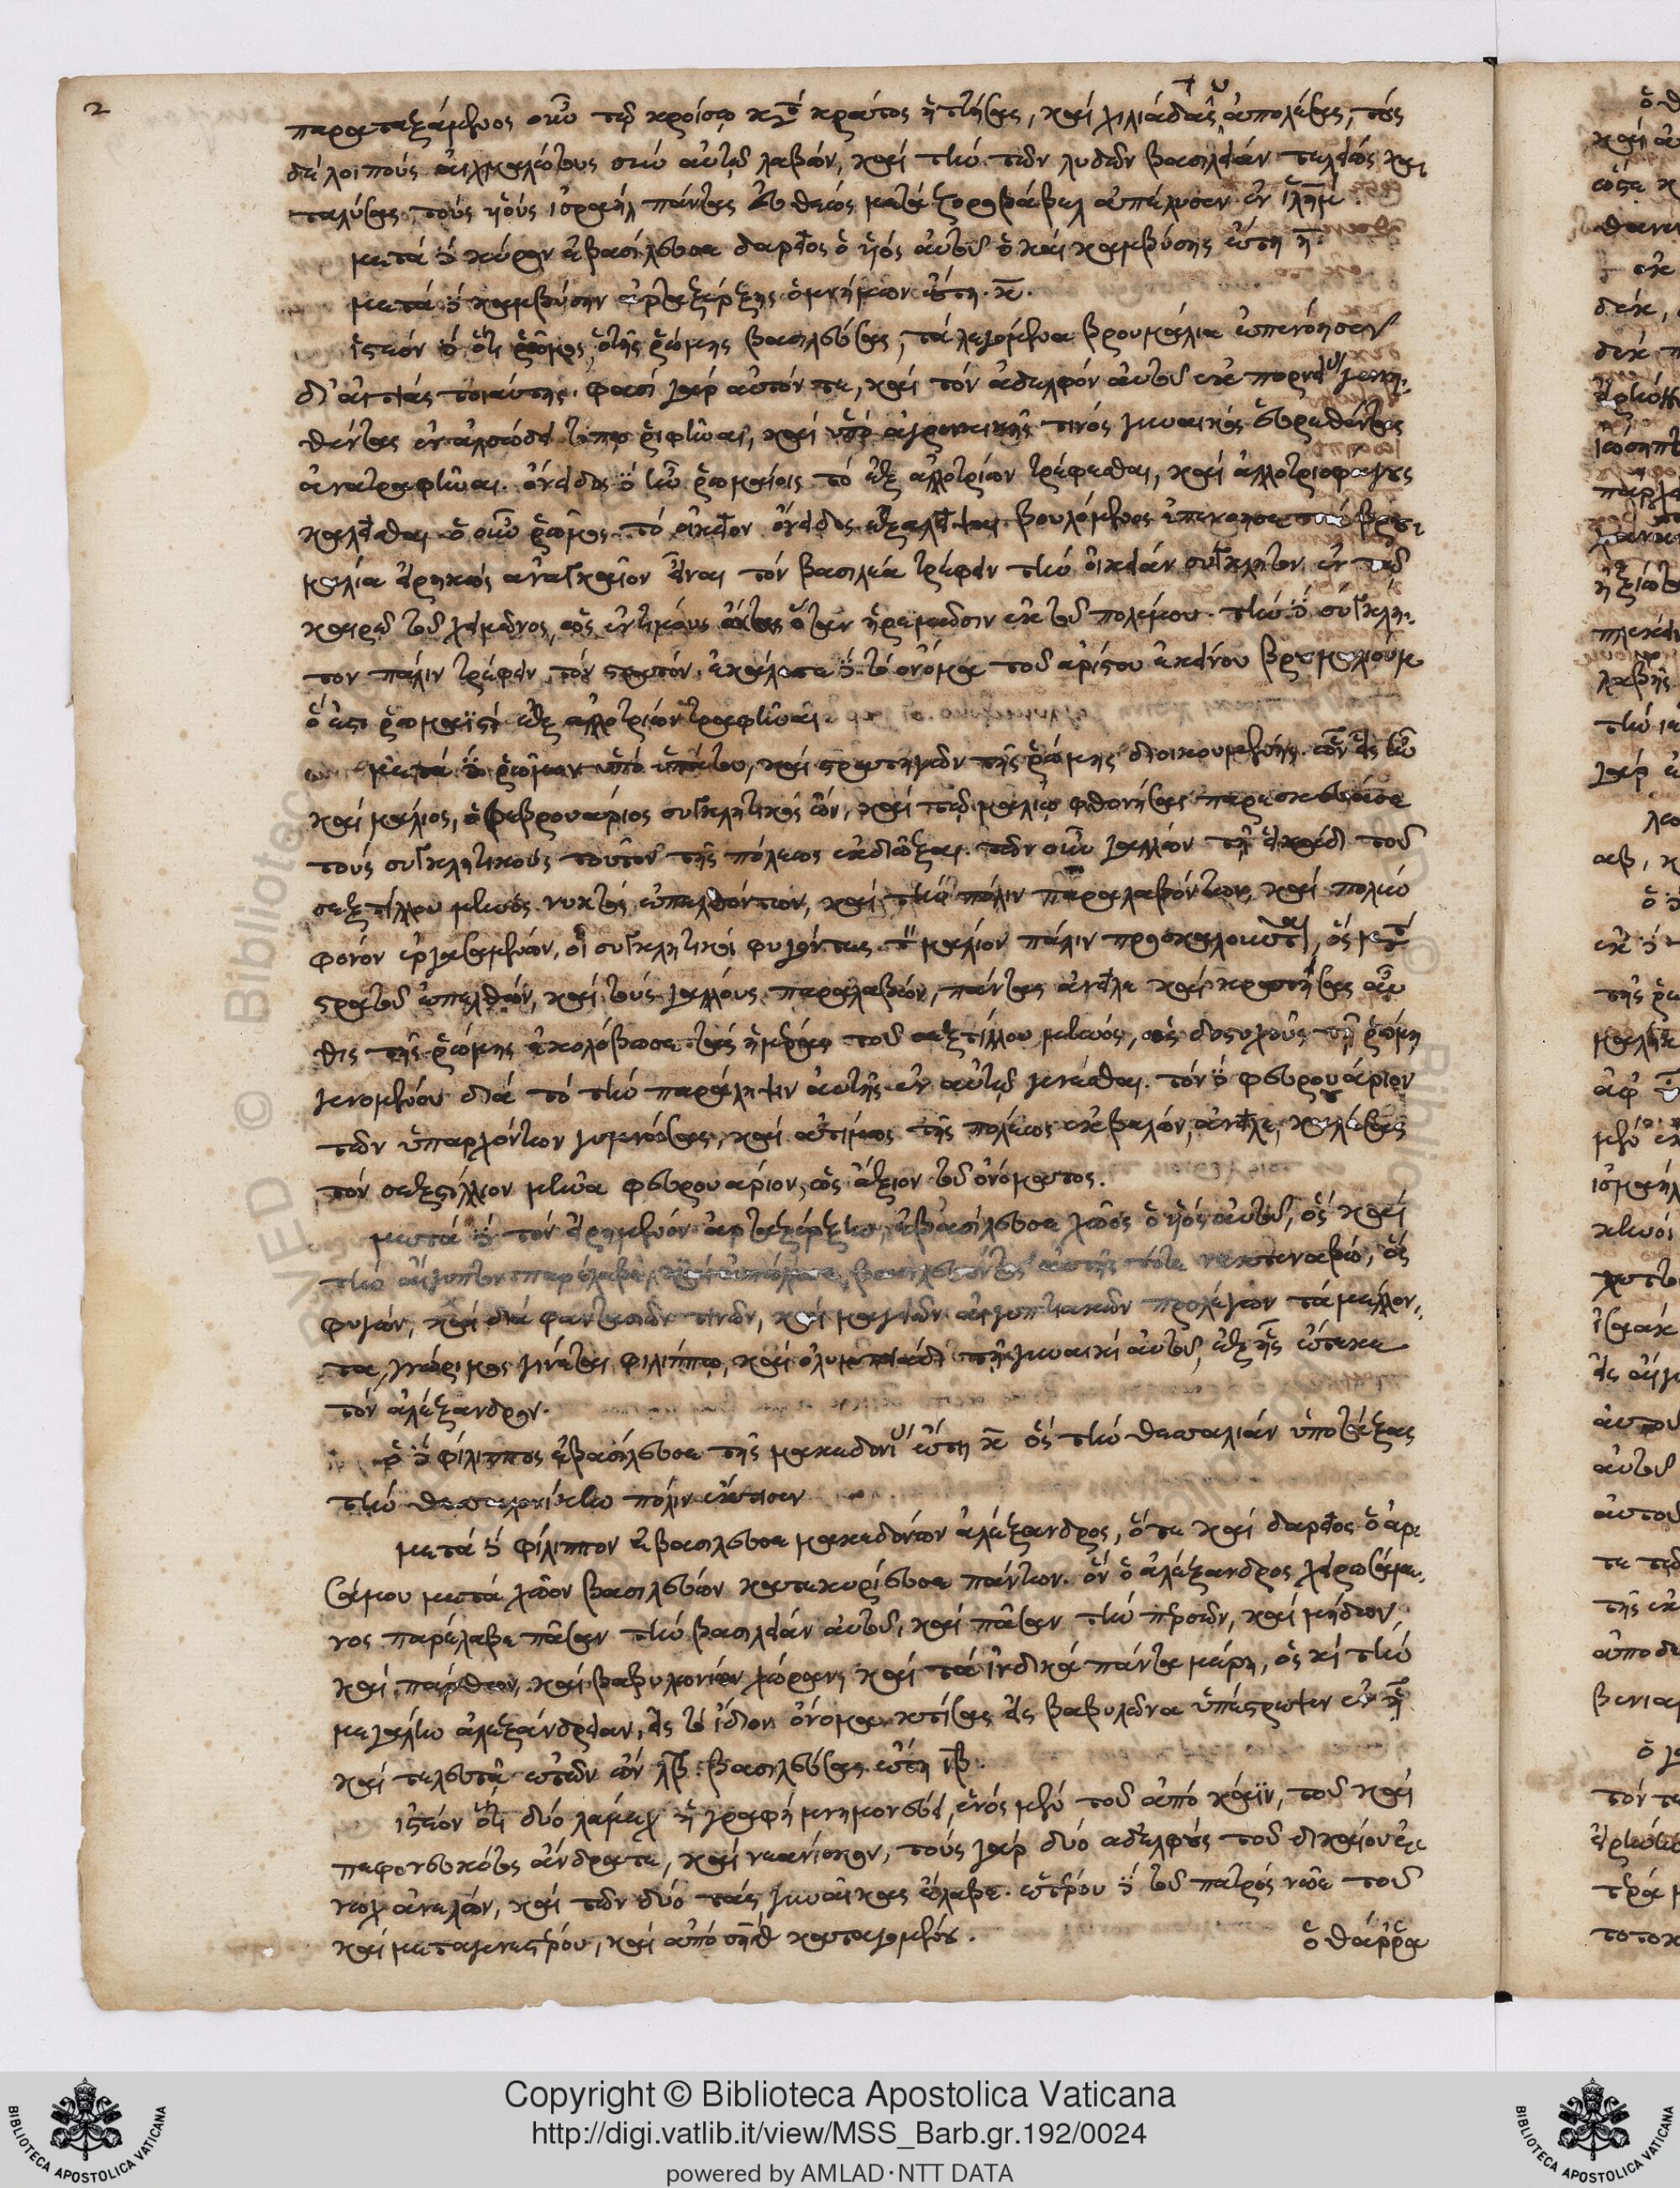 2
παραταξάμενος οὖν τῷ κροίσῳ κατὰ κράτος ἡττήσας, καὶ χιλιάδας υ ἀπολέσας, τοὺς
δὲ λοιποὺς αἰχμαλώτους σὺν αὐτῷ λαβὼν, καὶ τὴν τῶν λυδῶν βασιλείαν τελείως κα
ταλύσας τοὺς υἱοὺς ἰσραὴλ πάντας εὐθέως μετὰ ζοροβάβελ ἀπέλυσεν ἐν ἱλὴμ.
μετὰ δὲ κύρον ἐβασίλευσε δαρεῖος ὁ υἱὸς αὐτοῦ ὁ καὶ καμβύσης ἔτη η.
μετὰ δὲ καμβύσην ἀρταξέρξης ὁ μνήμων ἔτη κ.
ἰστέον δὲ ὅτι ῥῶμος, ὁ τῆς ῥώμης βασιλεύσας, τὰ λεγόμενα βρουμάλια ἐπενόησεν
δι' αἰτίας τοιαύτης. φασὶ γὰρ αὐτόν τε, καὶ τὸν ἀδελφὸν αὐτοῦ ἐκ πορνείας γεννη
θέντας ἐν ἀλσώδει τόπῳ ῥιφῆναι, καὶ ὑπὸ ἀγροικικῆς τινὸς γυναικὸς εὑρεθέντας
ἀνατραφῆναι. ὄνειδος δὲ ἦν ῥωμαίοις τὸ ἐξ ἀλλοτρίων τρέφεσθαι, καὶ ἀλλοτριοφάγους
καλεῖσθαι. ὁ οὖν ῥῶμος τὸ οἰκεῖον ὄνειδος ἐξαλεῖψαι βουλόμενος ἐπενόησε τὰ βρου
μάλια εἰρηκὼς ἀναγκαῖον εἶναι τὸν βασιλέα τρέφειν τὴν οἰκείαν σύγκλητον ἐν τῷ
καιρῷ τοῦ χειμῶνος, ὡς ἐντίμους ὄντας ὅταν ἠρεμῶσιν ἐκ τοῦ πολέμου. τὴν δὲ σύγκλη
τον πάλιν τρέφειν τὸν στρατόν. ἐκάλεσε δὲ τὸ ὄνομα τοῦ ἀρίστου ἐκείνου βρουμαλιοὺμ
ὅ ἐστι ῥωμαϊστὶ ἐξ ἀλλοτρίων τραφῆναι
μετὰ δὲ ῥῶμον ὑπὸ ὑπάτων, καὶ στρατηγῶν τῆς ῥώμης διοικουμένης. ὧν εἷς ἦν
καὶ μάλιος, ὁ φεβρουάριος συγκλητικὸς ὢν, καὶ τῷ μαλίῳ φθονήσας παρεσκεύασε
τοὺς συγκλητικοὺς τοῦτον τῆς πόλεως ἐκδιῶξαι. τῶν οὖν γάλλων τῇ εἰκάδι τοῦ
σεξτίλλου μηνὸς νυκτὸς ἐπελθόντων, καὶ τὴν πόλιν παραλαβόντων, καὶ πολὺν
φόνον ἐργασαμένων, οἱ συγκλητικοὶ φυγόντες τὸν μάλιον πάλιν προσκαλοῦνται, ὃς μετὰ
στρατοῦ ἐπελθὼν, καὶ τοὺς γάλλους παραλαβὼν, πάντας ἀνεῖλε καὶ κρατήσας αὖ
θις τῆς ῥώμης ἐκολόβωσε τὰς ἡμέρας τοῦ σεξτίλλου μηνὸς, ὡς δυστυχοῦς τῇ ῥώμῃ
γενομένου διὰ τὸ τὴν παράληψιν αὐτῆς ἐν αὐτῷ γενέσθαι. τὸν δὲ φευρουάριον
τῶν ὑπαρχόντων γυμνώσας, καὶ ἀτίμως τῆς πόλεως ἐκβαλὼν, ἀνεῖλε, καλέσας
τὸν σεξστίλλιον μῆνα φευρουάριον, ὡς ἄξιον τοῦ ὀνόματος.
μετὰ δὲ τὸν εἰρημένον ἀρταξέρξην, ἐβασίλευσε χῶος ὁ υἱὸς αὐτοῦ, ὃς καὶ
τὴν αἴγυπτον παρέλαβε, βασιλεύοντος αὐτῆς τότε νεκτεναβὼ, ὃς
φυγὼν, καὶ διὰ φαντασιῶν τινῶν, καὶ μαγειῶν αἰγυπτιακῶν προλέγων τὰ μέλλον
τα, γνώριμος γίνεται φιλίππῳ, καὶ ὀλυμπιάδι τῇ γυναικὶ αὐτοῦ, ἐξ ἧς ἔτεκε
τὸν ἀλέξανδρον.
ὁ δὲ φίλιππος ἐβασίλευσε τῆς μακεδονίας ἔτη κ ὃς τὴν θεσσαλίαν ὑποτάξας
τὴν θεσσαλονίκην πόλιν ἔκτισεν
μετὰ δὲ φίλιππον ἐβασίλευσε μακεδόνων ἀλέξανδρος, ὅτε καὶ δαρεῖος ὁ ἀρ
σάμου μετὰ χῶον βασιλεύων κατεκυρίευσε πάντων. ὃν ὁ ἀλέξανδρος χειρωσάμε
νος παρέλαβε πᾶσαν τὴν βασιλείαν αὐτοῦ, καὶ πᾶσαν τὴν περσῶν, καὶ μήδων,
καὶ πάρθων, καὶ βαβυλωνίων χώραν, καὶ τὰ ἰνδικὰ πάντα μέρη, ὃς καὶ τὴν
μεγάλην ἀλεξάνδρειαν, εἰς τὸ ἴδιον ὄνομα κτίσας εἰς βαβυλῶνα ὑπέστρεψεν ἐν ᾗ
καὶ τελευτᾷ ἐτῶν ὢν λβ. βασιλεύσας ἔτη ιβ.
ἰστέον ὅτι δύο λάμεχ ἡ γραφὴ μνημονεύει, ἑνὸς μὲν τοῦ ἀπὸ κάϊν, τοῦ καὶ
πεφονευκότος ἄνδρα τε, καὶ νεανίσκον, τοὺς γὰρ δύο ἀδελφοὺς τοῦ δικαίου ἐ
νὼχ ἀνελὼν, καὶ τῶν δύο τὰς γυναῖκας ἔλαβε. ἑτέρου δὲ τοῦ πατρὸς νῶε τοῦ
καὶ μεταγενεστέρου, καὶ ἀπὸ σὴθ καταγομένου.
ὁ θάρρα
Copyright © Biblioteca Apostolica Vaticana
http://digi.vatlib.it/view/MSS_Barb.gr.192/0024
powered by AMLAD·NTT DATA